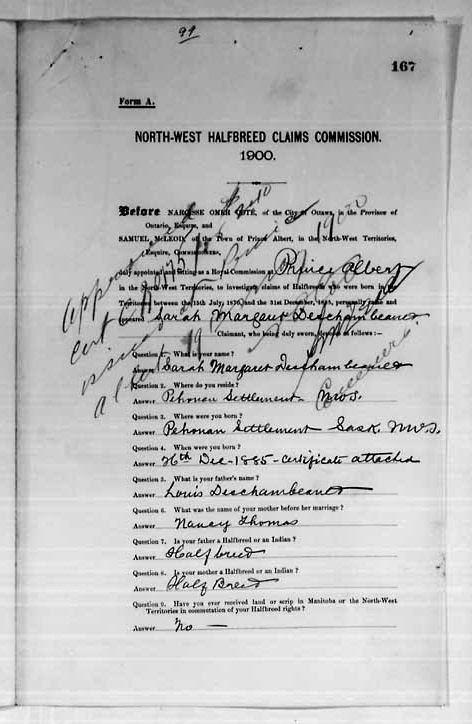 99
167
Form A.
NORTH-WEST HALFBREED CLAIMS COMMISSION.
1900.
Before NARCISSE OMER COTÉ, of the City of Ottawa, in the Province of
Ontario, Esquire, and
SAMUEL McLEOD, of the Town of Prince Albert, in the North-West Territories,
Esquire, Commissioners,
duly appointed and sitting as a Royal Commission at Prince Albert
in the North-West Territories, to investigate claims of Halfbreeds who were born in the
Territories between the 15th July, 1870, and the 31st December, 1885, personally came and
appeared Sarah Margaret Deschambeault
Claimant, who being duly sworn, deposes as follows :—
Question 1. What is your name ?
Answer Sarah Margaret Deschambeault
Question 2. Where do you reside?
Answer Pehonan Settlement NWS.
Question 3. Where were you born ?
Answer Pehonan Settlement Sask. NWS.
Question 4. When were you born ?
Answer 26th Dec - 1885 - certificate attached
Question 5. What is your father's name ?
Answer Louis Deschambeault
Question 6. What was the name of your mother before her marriage ?
Answer Nancy Thomas
Question 7. Is your father a Halfbreed or an Indian ?
Answer Halfbreed
Question 8. Is your mother a Halfbreed or an Indian ?
Answer Half Breed
Question 9. Have you ever received land or scrip in Manitoba or the North-West
Territories in commutation of your Halfbreed rights ?
Answer No —